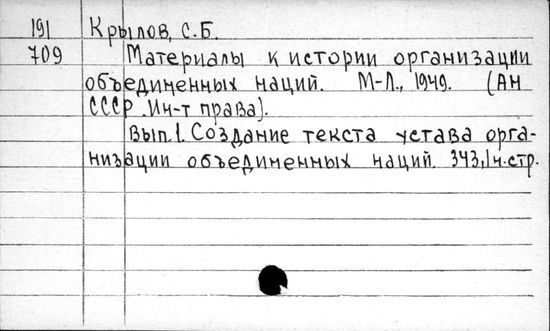 191 Крылов, С.Б.
709 Материалы к истории организации
объединенных наций. М-Л., 1949. (АН
СССР. Ин-т права).
Вып.1. Создание текста устава орга-
низации объединенных наций. 343,1ч.стр.